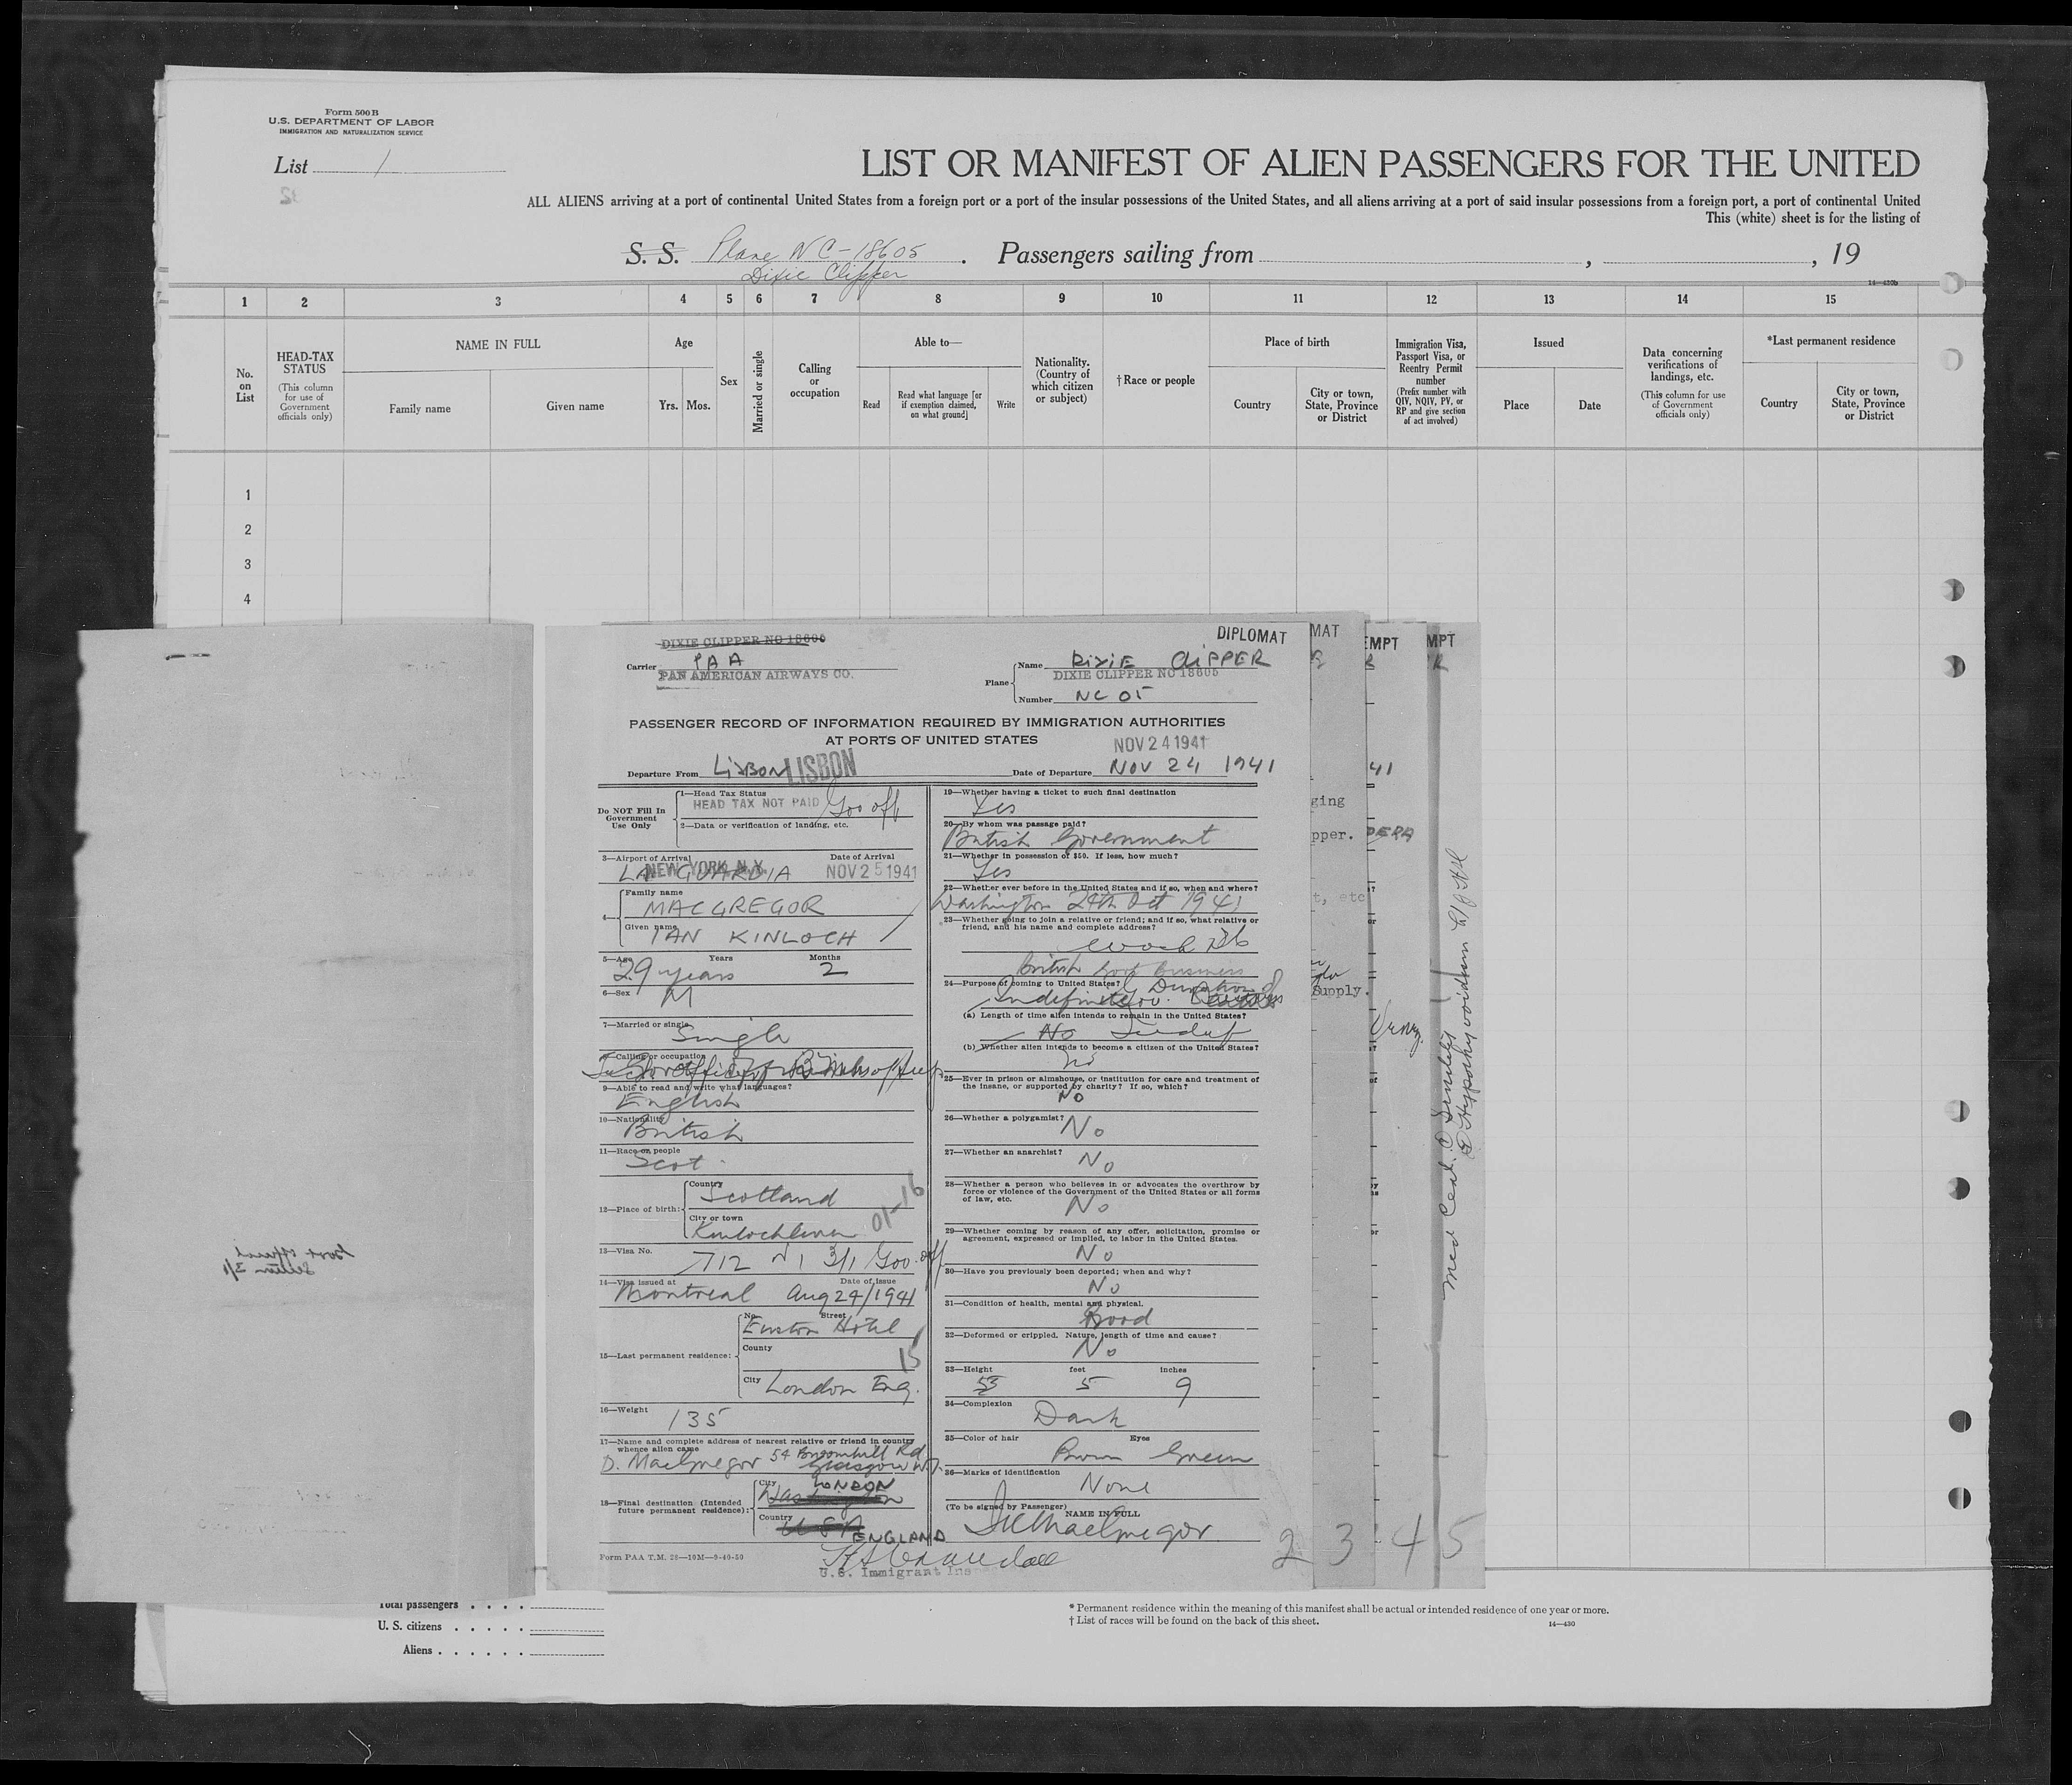 Form 500 B
U.S. DEPARTMENT OF LABOR
IMMIGRATION AND NATURALIZATION SERVICE
List 1
LIST OR MANIFEST OF ALIEN PASSENGERS FOR THE UNITED
ALL ALIENS arriving at a port of continental United States from a foreign port or a port of the insular possessions of the United States, and all aliens arriving at a port of said insular possessions from a foreign port, a port of continental United
This (white) sheet is for the listing of
S. S. Plane NC-18605 . Passengers sailing from , , 19
Dixie Clipper
14—430b
1 2 3 4 5 6 7 8 9 10 11 12 13 14 15
No. on List
HEAD-TAX STATUS
(This column for use of Government officials only)
NAME IN FULL
Family name Given name
Age
Yrs. Mos.
Sex
Married or single
Calling or occupation
Able to—
Read
Read what language [or if exemption claimed, on what ground]
Write
Nationality. (Country of which citizen or subject)
†Race or people
Place of birth
Country
City or town, State, Province or District
Immigration Visa, Passport Visa, or Reentry Permit number
(Prefix number with QIV, NQIV, PV, or RP and give section of act involved)
Issued
Place Date
Data concerning verifications of landings, etc.
(This column for use of Government officials only)
*Last permanent residence
Country
City or town, State, Province or District
1
2
3
4
DIXIE CLIPPER NC 18605
DIPLOMAT
MAT
EMPT
MPT
Carrier PAA
PAN AMERICAN AIRWAYS CO.
Plane Name DIXIE CLIPPER
DIXIE CLIPPER NC 18605
Number NC 05
PASSENGER RECORD OF INFORMATION REQUIRED BY IMMIGRATION AUTHORITIES
AT PORTS OF UNITED STATES
NOV 24 1941
Departure From LISBON LISBON
Date of Departure NOV 24 1941
41
Do NOT Fill In Government Use Only
1—Head Tax Status
HEAD TAX NOT PAID Gov off
2—Data or verification of landing, etc.
3—Airport of Arrival Date of Arrival
LA GUARDIA NEW YORK, N.Y. NOV 25 1941
4— Family name
MACGREGOR
Given name
IAN KINLOCH
5—Age Years Months
29 years 2
6—Sex M
7—Married or single
Single
8—Calling or occupation
9—Able to read and write what languages?
English
10—Nationality
British
11—Race or people
Scot
12—Place of birth:
Country
Scotland
City or town
Kinlochleven
01-16
13—Visa No.
712 3/1 Gov. off
14—Visa issued at Date of issue
Montreal Aug 24/1941
15—Last permanent residence:
No. Street
Euston Hotel
County
15
City London Eng.
16—Weight 135
17—Name and complete address of nearest relative or friend in country whence alien came
D. MacGregor 54 Broomhill Rd
Glasgow W.
18—Final destination (Intended future permanent residence):
City LONDON
Washington
Country
U S A
ENGLAND
Form PAA T.M. 28—10M—9-40-50
U.S. Immigrant Ins
19—Whether having a ticket to such final destination
Yes
20—By whom was passage paid?
British Government
21—Whether in possession of $50. If less, how much?
Yes
22—Whether ever before in the United States and if so, when and where?
Washington 24th Oct 1941
23—Whether going to join a relative or friend; and if so, what relative or friend, and his name and complete address?
British Govt Business
24—Purpose of coming to United States?
(a) Length of time alien intends to remain in the United States?
No Indef
(b) Whether alien intends to become a citizen of the United States?
No
25—Ever in prison or almshouse, or institution for care and treatment of the insane, or supported by charity? If so, which?
No
26—Whether a polygamist?
No
27—Whether an anarchist?
No
28—Whether a person who believes in or advocates the overthrow by force or violence of the Government of the United States or all forms of law, etc.
No
29—Whether coming by reason of any offer, solicitation, promise or agreement, expressed or implied, to labor in the United States.
No
30—Have you previously been deported; when and why?
No
31—Condition of health, mental and physical.
Good
32—Deformed or crippled. Nature, length of time and cause?
No
33—Height feet inches
5 9
34—Complexion
Dark
35—Color of hair Eyes
Brown Green
36—Marks of identification
None
(To be signed by Passenger)
NAME IN FULL
IKMacGregor
2 3 4 5
ging
pper.
t, etc
Supply.
Med Cert. ① Senility
Total passengers . . . .
U. S. citizens . . . . .
Aliens . . . . . .
* Permanent residence within the meaning of this manifest shall be actual or intended residence of one year or more.
† List of races will be found on the back of this sheet.
14—430